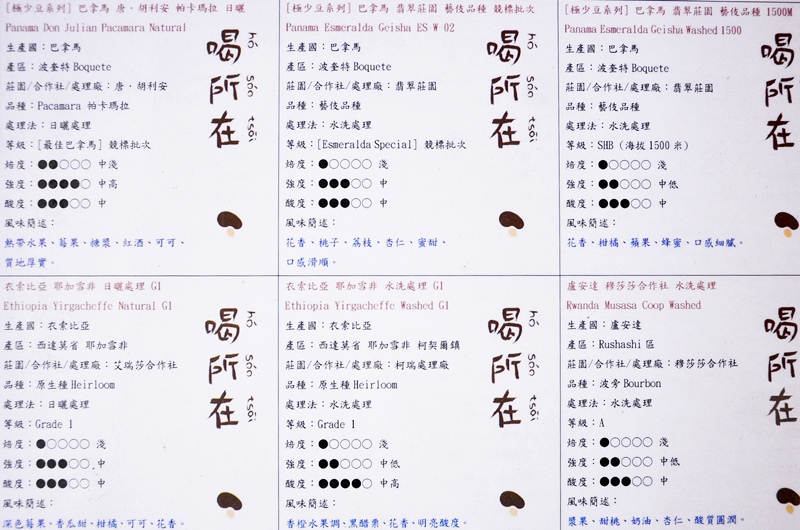 [極少豆系列] 巴拿馬 唐．胡利安 帕卡瑪拉 日曬
Panama Don Julian Pacamara Natural
生產國：巴拿馬
產區：波奎特Boquete
莊園/合作社/處理廠：唐．胡利安
品種：Pacamara 帕卡瑪拉
處理法：日曬處理
等級：[最佳巴拿馬] 競標批次
焙度：●●○○○ 中淺
強度：●●●●○ 中高
酸度：●●●○○ 中
風味簡述：
熱帶水果、莓果、糖漿、紅酒、可可、
質地厚實。
喝所在
hó sóo tsāi
[極少豆系列] 巴拿馬 翡翠莊園 藝伎品種 競標批次
Panama Esmeralda Geisha ES-W-02
生產國：巴拿馬
產區：波奎特Boquete
莊園/合作社/處理廠：翡翠莊園
品種：藝伎品種
處理法：水洗處理
等級：[Esmeralda Special] 競標批次
焙度：●○○○○ 淺
強度：●●●○○ 中
酸度：●●●○○ 中
風味簡述：
花香、桃子、荔枝、杏仁、蜜甜、
口感滑順。
喝所在
hó sóo tsāi
[極少豆系列] 巴拿馬 翡翠莊園 藝伎品種 1500M
Panama Esmeralda Geisha Washed 1500
生產國：巴拿馬
產區：波奎特Boquete
莊園/合作社/處理廠：翡翠莊園
品種：藝伎品種
處理法：水洗處理
等級：SHB (海拔1500米)
焙度：●○○○○ 淺
強度：●●○○○ 中低
酸度：●●●○○ 中
風味簡述：
花香、柑橘、蘋果、蜂蜜、口感細膩。
喝所在
衣索比亞 耶加雪菲 日曬處理 G1
Ethiopia Yirgacheffe Natural G1
生產國：衣索比亞
產區：西達莫省 耶加雪菲
莊園/合作社/處理廠：艾瑞莎合作社
品種：原生種Heirloom
處理法：日曬處理
等級：Grade 1
焙度：●○○○○ 淺
強度：●●●○○ 中
酸度：●●●○○ 中
風味簡述：
深色莓果、香瓜甜、柑橘、可可、花香。
喝所在
hó sóo tsāi
衣索比亞 耶加雪菲 水洗處理 G1
Ethiopia Yirgacheffe Washed G1
生產國：衣索比亞
產區：西達莫省 耶加雪菲 柯契爾鎮
莊園/合作社/處理廠：柯瑞處理廠
品種：原生種Heirloom
處理法：水洗處理
等級：Grade 1
焙度：●○○○○ 淺
強度：●●○○○ 中低
酸度：●●●●○ 中高
風味簡述：
香橙水果調、黑醋栗、花香、明亮酸度。
喝所在
hó sóo tsāi
盧安達 穆莎莎合作社 水洗處理
Rwanda Musasa Coop Washed
生產國：盧安達
產區：Rushashi 區
莊園/合作社/處理廠：穆莎莎合作社
品種：波旁Bourbon
處理法：水洗處理
等級：A
焙度：●○○○○ 淺
強度：●●○○○ 中低
酸度：●●●○○ 中
風味簡述：
漿果、甜桃、奶油、杏仁、酸質圓潤。
喝所在